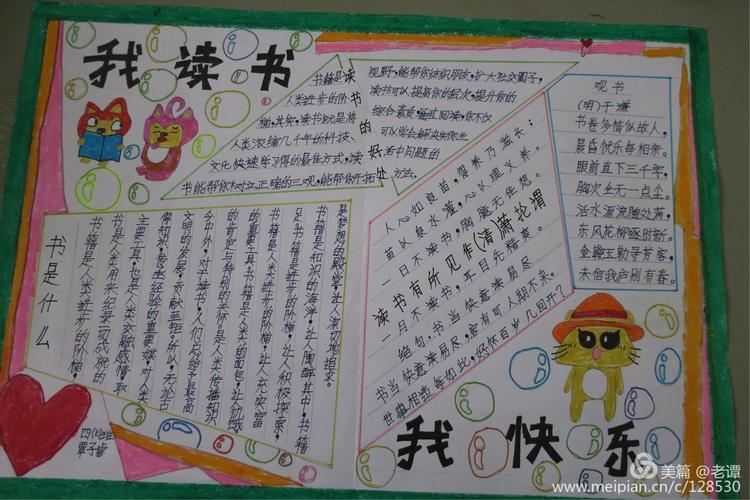 我读书
书籍是
人类进步的阶
梯,其实,读书就是将
人类浓缩几千年的科技、
文化快速学习得的最佳方式,读
书能帮你树立正确的三观,能帮你开拓
读书的好处
视野,能帮你结织朋友,扩大社交圈子,
读书可以提高你的层次,提升你的
综合素质,通过阅读,你不仅
可以学会解决实际生
活中问题的
方法。
观书
(明)于谦
书卷多情似故人,
晨昏忧乐每相亲。
眼前直下三千字,
胸次全无一点尘。
活水源流随处满,
东风花柳逐时新。
金鞍玉勒寻芳客,
未信我庐别有春。
书是什么
书籍是人类进步的阶梯。
书是人类用来纪录一切成就的
主要工具,也是人类交融感情,取
得知识,传承经验的重要媒
今中外,对于读书,人们总给予最高
的肯定与特别的关怀。是人类传播知识
的重要工具,书籍是人类的面包,让饥饿
书籍是知识的海洋,让人陶醉其中,书籍
是梦想的殿堂,让人深切地追求。
人心如良苗,得养乃滋长;
苗以泉水灌,心以理义养。
一日不读书,胸臆无佳想。
读书有所见作(清)萧抡谓
一月不读书,耳目失精爽。
绝句·书当快意读易尽
书当快意读易尽,客有可人期不来。
世事相违每如此,好怀百岁几回开?
四
覃子
我快乐
美篇 @老谭
www.meipian.cn/c/128530